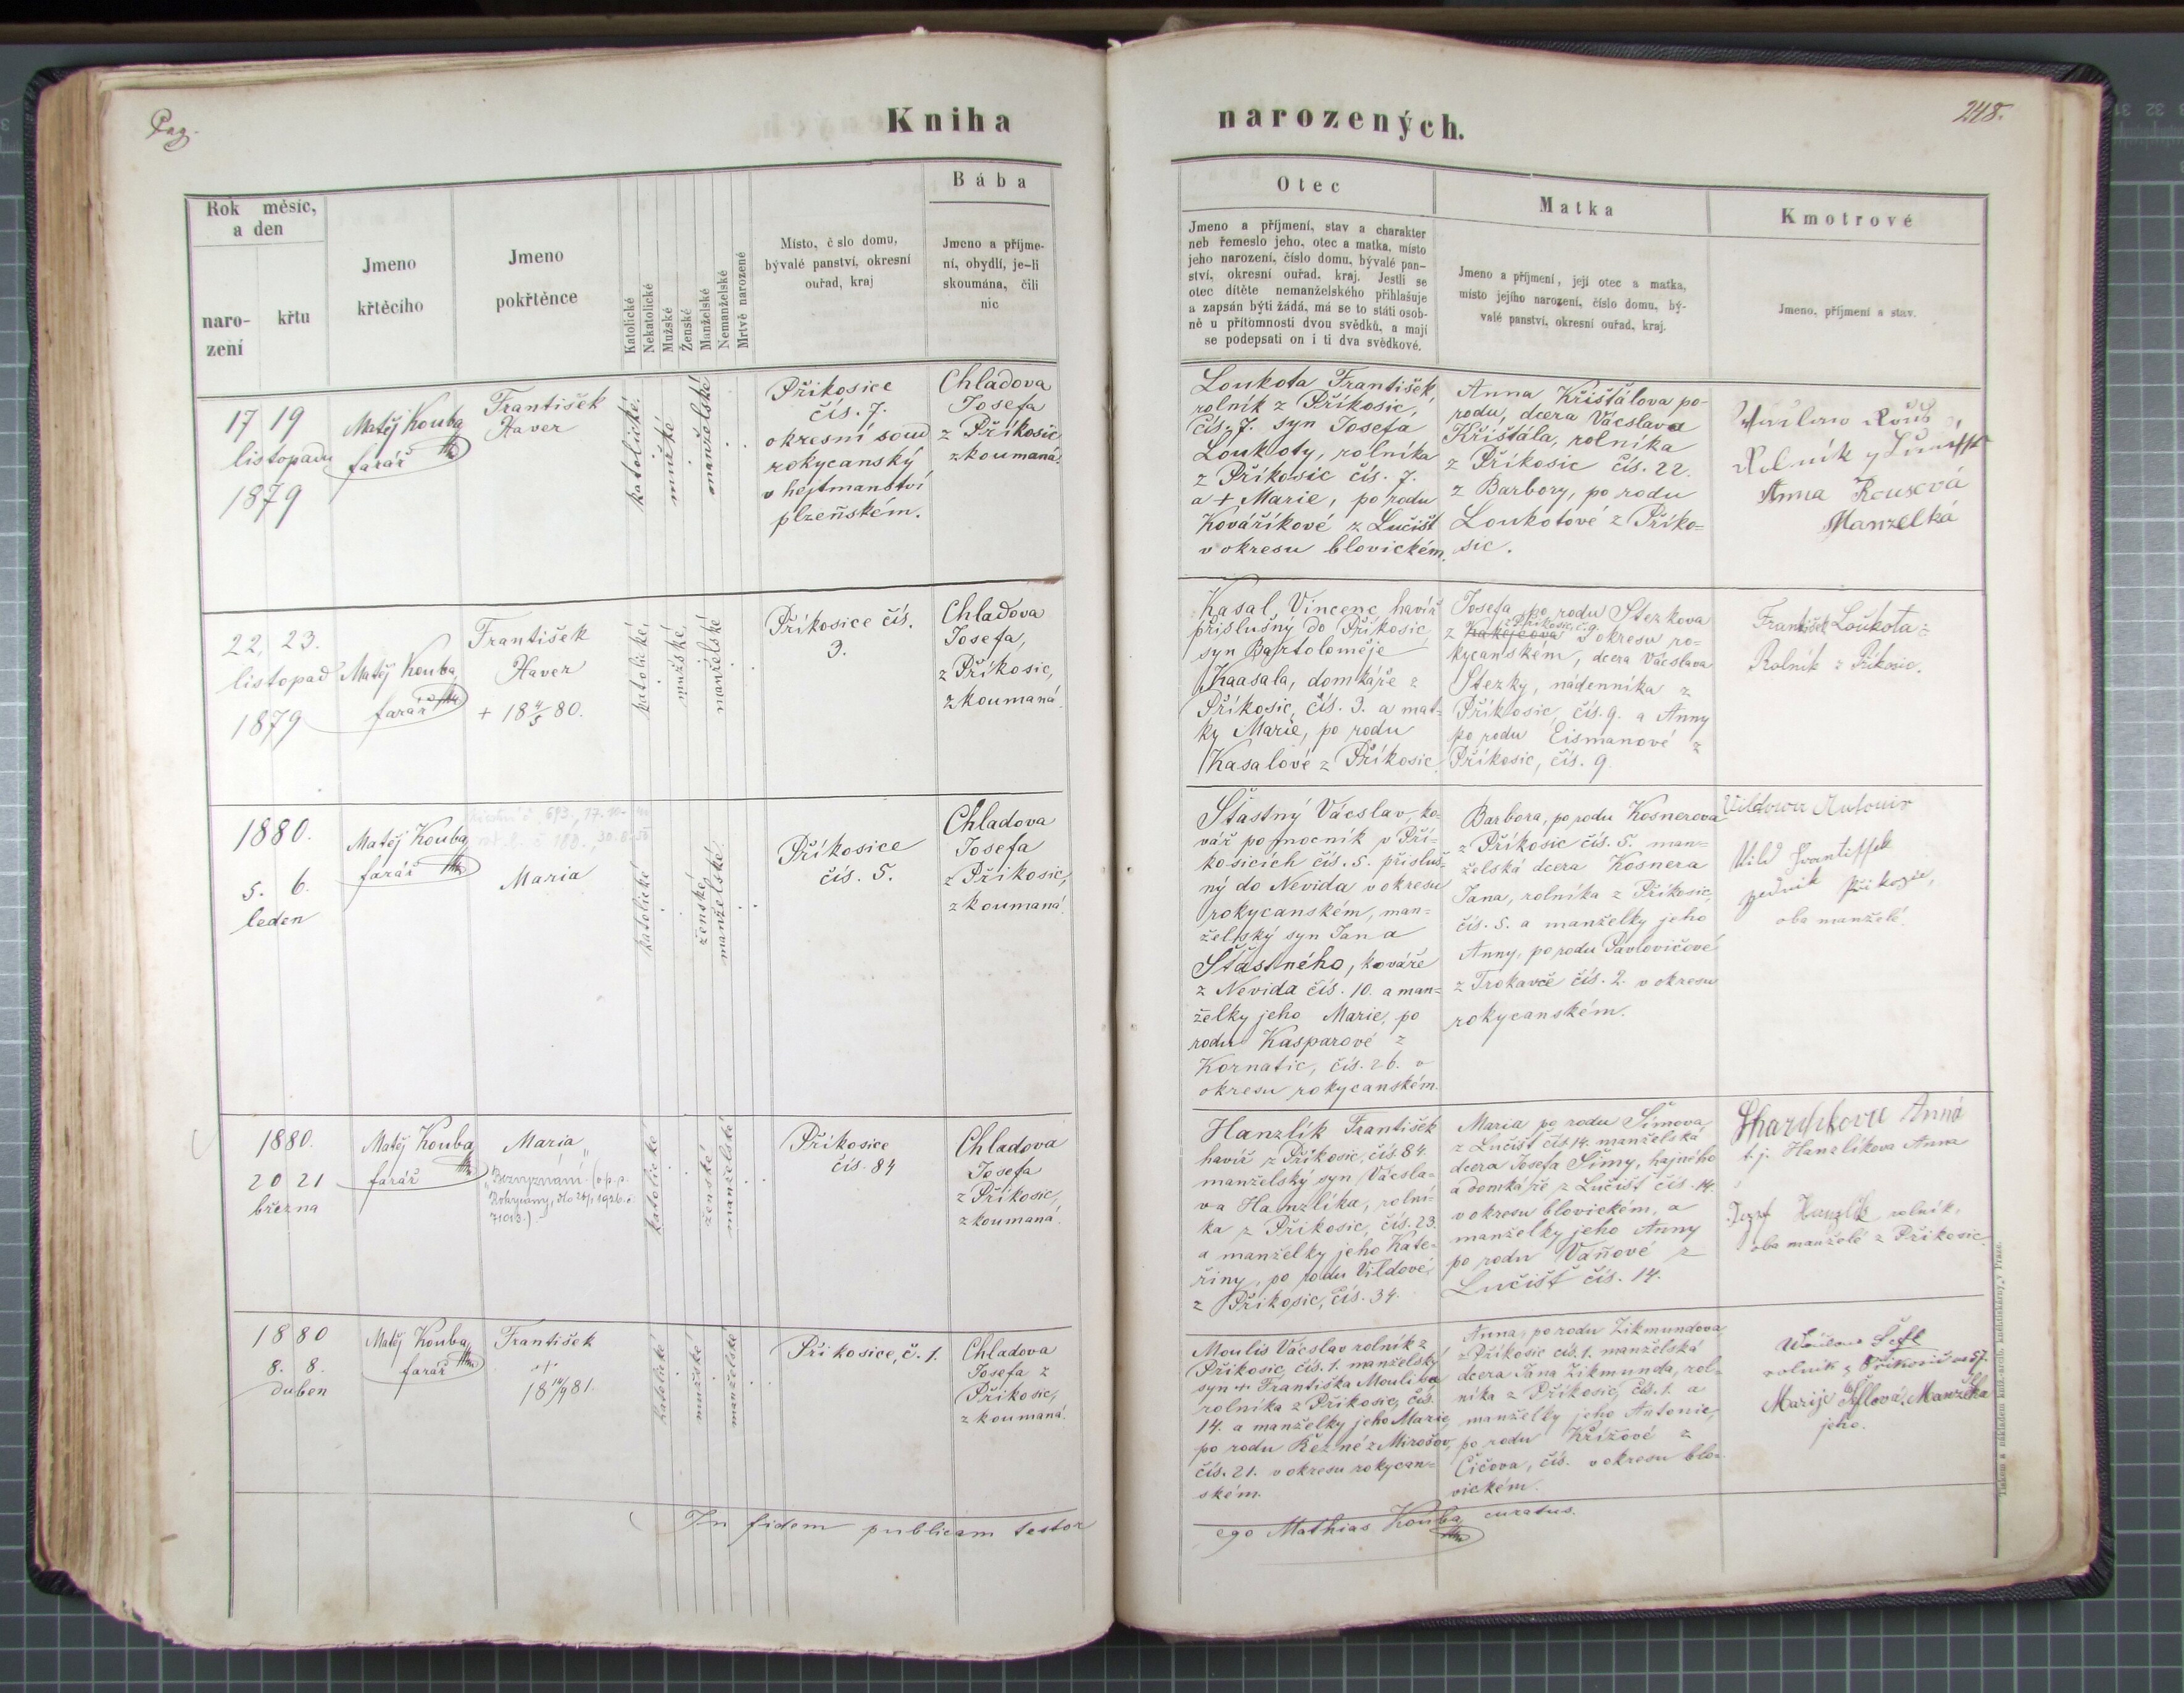 Pag.
Kniha
narozených.
248.
Rok měsíc,
a den
naro-
zení
křtu
Jmeno
křtěcího
Jmeno
pokřtěnce
Katolické
Nekatolické
Mužské
Ženské
Manželské
Nemanželské
Mrtvě narozené
Místo, č slo domu,
bývalé panství, okresní
ouřad, kraj
Bába
Jmeno a příjme-
ní, obydlí, je-li
skoumána, čili
nic
Otec
Jmeno a příjmení, stav a charakter
neb řemeslo jeho, otec a matka, místo
jeho narození, číslo domu, bývalé pan-
ství, okresní ouřad, kraj. Jestli se
otec dítěte nemanželského přihlašuje
a zapsán býti žádá, má se to státi osob-
ně u přítomnosti dvou svědků, a mají
se podepsati on i ti dva svědkové.
Matka
Jmeno a příjmení, její otec a matka,
místo jejího narození, číslo domu, bý-
valé panství, okresní ouřad, kraj.
Kmotrové
Jmeno, příjmení a stav.
17 19
listopadu
1879
Matěj Kouba
farář
František
Xaver
katolické
mužské
manželské
Příkosice
čís. 7.
okresní soud
rokycanský
v hejtmanství
plzeňském.
Chladova
Josefa
z Příkosic
zkoumaná.
Loukota František,
rolník z Příkosic,
čís. 7. syn Josefa
Loukoty, rolníka
z Příkosic čís. 7.
a + Marie, po rodu
Kováříkové z Lučišt
v okresu blovickém.
Anna Křištálova po-
rodu, dcera Václava
Křištála, rolníka
z Příkosic čís. 22.
z Barbory, po rodu
Loukotové z Příko=
sic.
Rolník
Anna Rousová
Manzelká
22. 23.
listopad
1879
Matěj Kouba
farář
František
Xaver
+ 18 4/5 80.
katolické
mužské
manželské
Příkosice čís.
3.
Chladova
Josefa,
z Příkosic,
zkoumaná.
Kasal, Vincenc havíř
příslušný do Příkosic
syn Bartoloměje
Kaasala, domkáře z
Příkosic, čís. 3. a mat-
ky Marie, po rodu
Kasalové z Příkosic.
Josefa, po rodu Sterkova
z Příkosic, č. 9.
v okresu ro-
kycanském, dcera Václava
Sterky, nádenníka z
Příkosic, čís. 9. a Anny
po rodu Eismanové z
Příkosic, čís. 9.
František Loukota
Rolník z Příkosic.
1880.
5. 6.
leden
Matěj Kouba
farář
Maria
katolické
ženské
manželské
Příkosice
čís. 5.
Chladova
Josefa
z Příkosic,
zkoumaná.
Šťastný Václav, ko-
vář pomocník v Pří-
kosicích čís. 5. přísluš-
ný do Nevida v okresu
rokycanském, man-
želský syn Jana
Šťastného, kováře
z Nevida čís. 10. a man-
želky jeho Marie, po
rodu Kasparové z
Kornatic, čís. 26. v
okresu rokycanském.
Barbora, po rodu Kosnerova
z Příkosic čís. 5. man-
želská dcera Kosnera
Jana, rolníka z Příkosic,
čís. 5. a manželky jeho
Anny, po rodu Pavlovičové
z Trokavče čís. 2. v okresu
rokycanském.
Vildova
Vild Frantissek
oba manželé.
1880.
20 21
března
Matěj Kouba
farář
Maria
„Bezvyznání“ (o.p.p.
katolické
ženské
manželské
Příkosice
čís. 84
Chladova
Josefa
z Příkosic,
zkoumaná.
Hanzlík František
havíř z Příkosic, čís. 84.
manželský syn Vácsla-
va Hanzlíka, rolní-
ka z Příkosic, čís. 23.
a manželky jeho Kate-
řiny, po rodu Vildové
z Příkosic, čís. 34.
Maria po rodu Šimova
z Lučišt čís 14. manželská
dcera Josefa Šimy, hajného
a domkáře z Lučišt čís. 14.
v okresu blovickém, a
manželky jeho Anny
po rodu Vaňové z
Lučišť čís. 14.
Anná
t.j. Hanzlíkova Anna
Jozef Hanzlík rolník,
oba manželé z Příkosic.
1880
8. 8.
duben
Matěj Kouba,
farář
František
+
18 10/9 81.
katolické
mužské
manželské
Příkosice, č. 1.
Chladova
Josefa z
Příkosic,
zkoumaná.
Moulis Václav rolník z
Příkosic, čís. 1. manželský
syn + Františka Moulisa
rolníka z Příkosic, čís.
14. a manželky jeho Marie,
po rodu Řezné z Mirošov,
čís. 21. v okresu rokycan-
ském.
Anna, po rodu Zikmundova
z Příkosic čís. 1. manželská
dcera Jana Zikmunda, rol-
níka z Příkosic, čís. 1. a
manželky jeho Antonie,
po rodu Křížové z
Čičova, čís. v okresu blo-
vickém.
rolník z
Marije Manželka
jeho.
In fidem publicam testor
ego Mathias Kouba curatus.